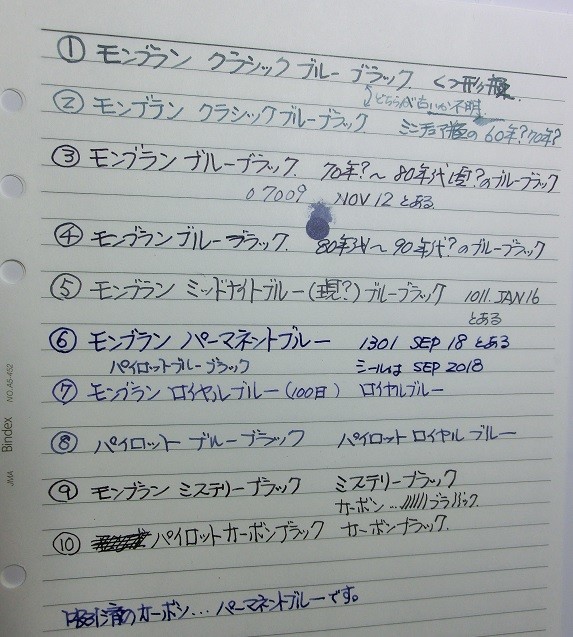 ① モンブラン クラシック ブルー ブラック くつ形瓶
どちらが古いか不明
② モンブラン クラシックブルーブラック ミニチュア瓶の60年?70年?
③ モンブラン ブルーブラック 70年?~80年代頃?のブルーブラック
07009 NOV 12 とある
④ モンブラン ブルーブラック. 80年代~90年代?のブルーブラック
⑤ モンブラン ミッドナイトブルー(現?)ブルーブラック 1011. JAN 16
とある
⑥ モンブラン パーマネントブルー 1301 SEP 18 とある
パイロットブルーブラック シールは SEP 2018
⑦ モンブラン ロイヤルブルー(100日) ロイヤルブルー
⑧ パイロット ブルーブラック パイロット ロイヤル ブルー
⑨ モンブラン ミステリーブラック ミステリーブラック
カーボン... ブラック
⑩ パイロットカーボンブラック カーボンブラック.
のカーボン... パーマネントブルーです。
JMA Bindex NO.A5-452